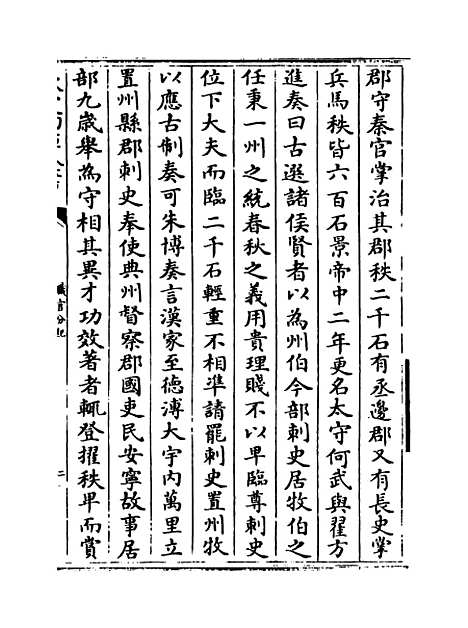 郡守秦官掌治其郡秩二千石有丞邊郡又有長史掌
兵馬秩皆六百石景帝中二年更名太守何武與翟方
進奏曰古選諸侯賢者以為州伯今部刺史居牧伯之
任秉一州之統春秋之義用貴理賤不以卑臨尊刺史
位下大夫而臨二千石輕重不相準請罷刺史置州牧
以應古制奏可朱博奏言漢家至徳溥大宇内萬里立
置州縣郡刺史奉使典州督察郡國吏民安寧故事居
部九歳舉為守相其異才功效著者輒登擢秩卑而賞
職官分紀
二